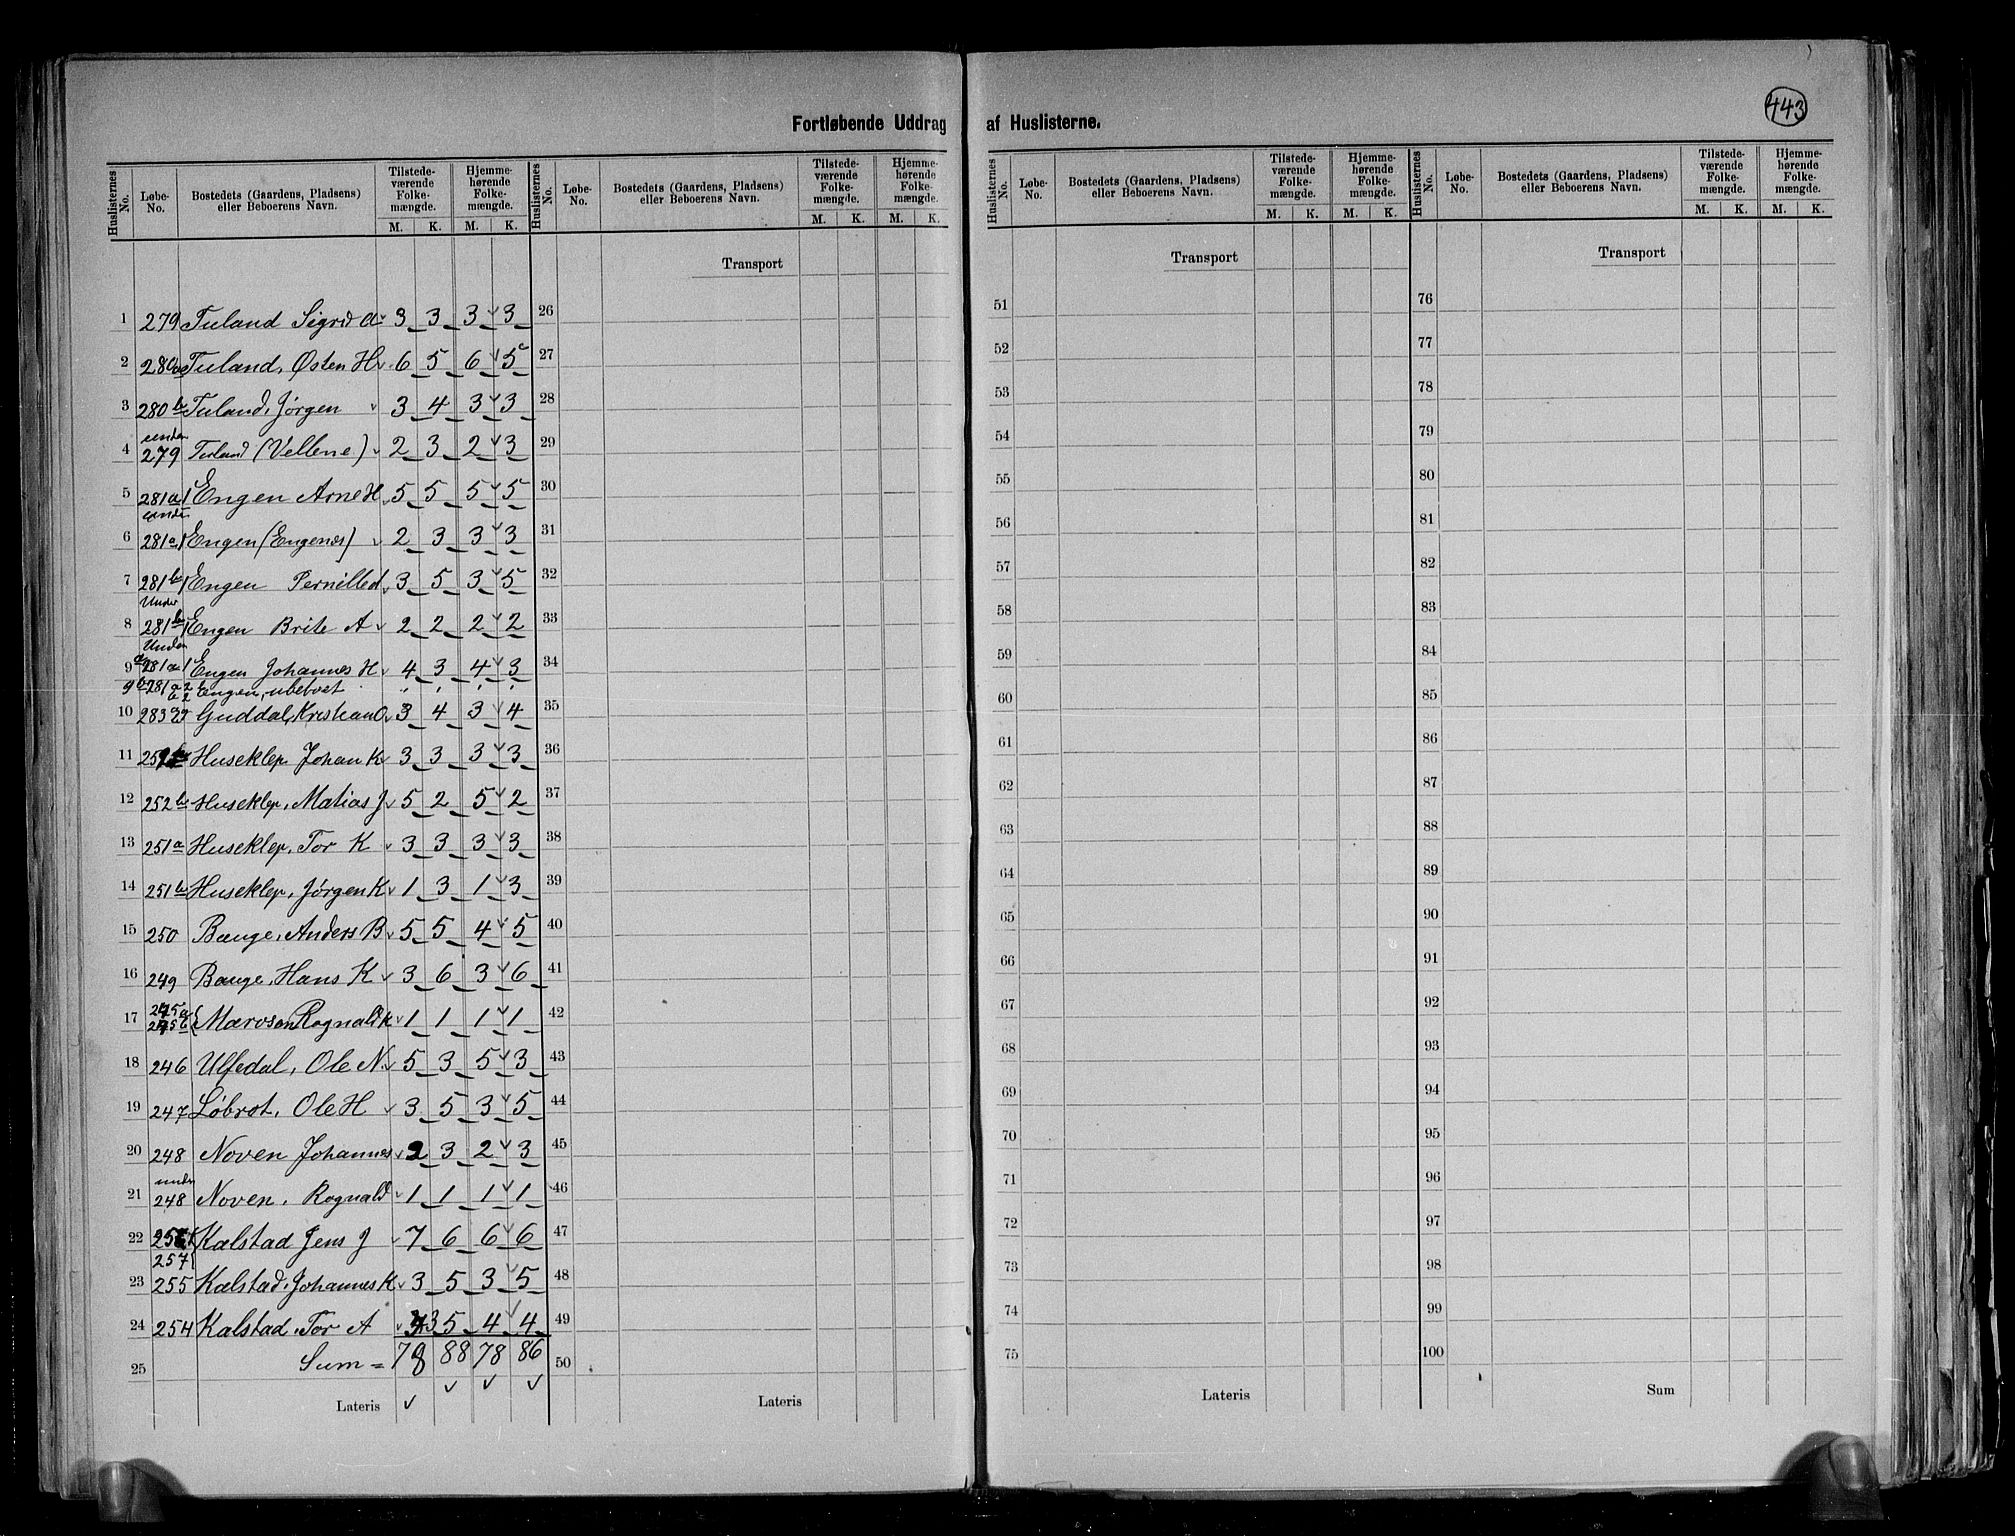 443
Fortløbende Uddrag af Huslisterne.
Huslisternes No. Løbe-No. Bostedets (Gaardens, Pladsens) eller Beboerens Navn. Tilstedeværende Folkemængde. Hjemmehørende Folkemængde. M. K. M. K.
Huslisternes No. Løbe-No. Bostedets (Gaardens, Pladsens) eller Beboerens Navn. Tilstedeværende Folkemængde. Hjemmehørende Folkemængde. M. K. M. K.
Huslisternes No. Løbe-No. Bostedets (Gaardens, Pladsens) eller Beboerens Navn. Tilstedeværende Folkemængde. Hjemmehørende Folkemængde. M. K. M. K.
Huslisternes No. Løbe-No. Bostedets (Gaardens, Pladsens) eller Beboerens Navn. Tilstedeværende Folkemængde. Hjemmehørende Folkemængde. M. K. M. K.
Transport Transport Transport
1 279 Tuland Sigrid d 3 3 3 3 26 51 76
2 280a Tuland, Østen H 6 5 6 5 27 52 77
3 280b Tuland, Jørgen 3 4 3 3 28 53 78
4 under 279 Tuland (Vellene) 2 3 2 3 29 54 79
5 281a1 Engen Arne H 5 5 5 5 30 55 80
6 under 281a1 Engen (Engenes) 2 3 3 3 31 56 81
7 281b1 Engen Pernille d 3 5 3 5 32 57 82
8 Under 281b1 Engen Brite A 2 2 2 2 33 58 83
9a Under 281a1 Engen Johannes H 4 3 4 3 34 59 84
9b 281 a2 b2 Engen, ubeboet
10 283 Guddal, Kristian O 3 4 3 4 35 60 85
11 Huseklep Johan K 3 3 3 3 36 61 86
12 252b Huseklep, Matias J 5 2 5 2 37 62 87
13 251a Huseklep, Tor K 3 3 3 3 38 63 88
14 251b Huseklep, Jørgen K 1 3 1 3 39 64 89
15 250 Bauge, Anders B 5 5 4 5 40 65 90
16 249 Bauge, Hans K 3 6 3 6 41 66 91
17 245a 245b Mærvsen Rognald K 1 1 1 1 42 67 92
18 246 Ulfedal, Ole N. 5 3 5 3 43 68 93
19 247 Løbrot, Ole H 3 5 3 5 44 69 94
20 248 Noven Johannes 2 3 2 3 45 70 95
21 under 248 Noven, Rognald 1 1 1 1 46 71 96
22 257 Kalstad Jens J 7 6 6 6 47 72 97
23 255 Kalstad, Johannes K 3 5 3 5 48 73 98
24 254 Kalstad, Tor A 3 5 4 4 49 74 99
25 Sum = 78 88 78 86 50 75 100
Lateris Lateris Lateris Sum